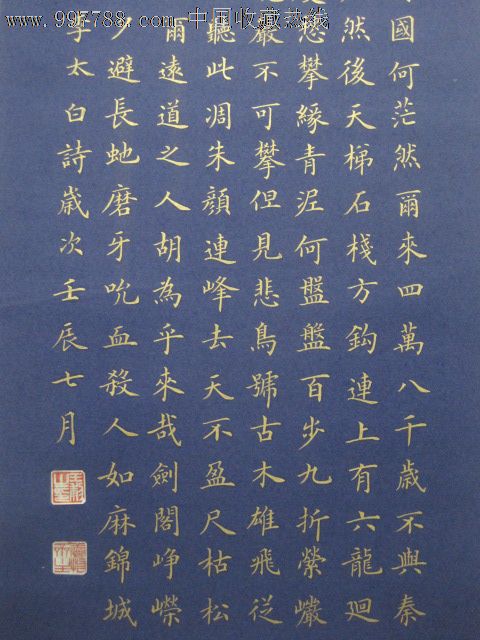 www.997788.com 中国收藏热线
國何茫然爾來四萬八千歲不與秦
然後天梯石棧方鈎連上有六龍廻
愁攀緣青泥何盤盤百步九折縈巖
巖不可攀但見悲鳥號古木雄飛從
聽此凋朱顏連峰去天不盈尺枯松
爾遠道之人胡為乎來哉劍閣崢嶸
夕避長虵磨牙吮血殺人如麻錦城
李太白詩歲次壬辰七月